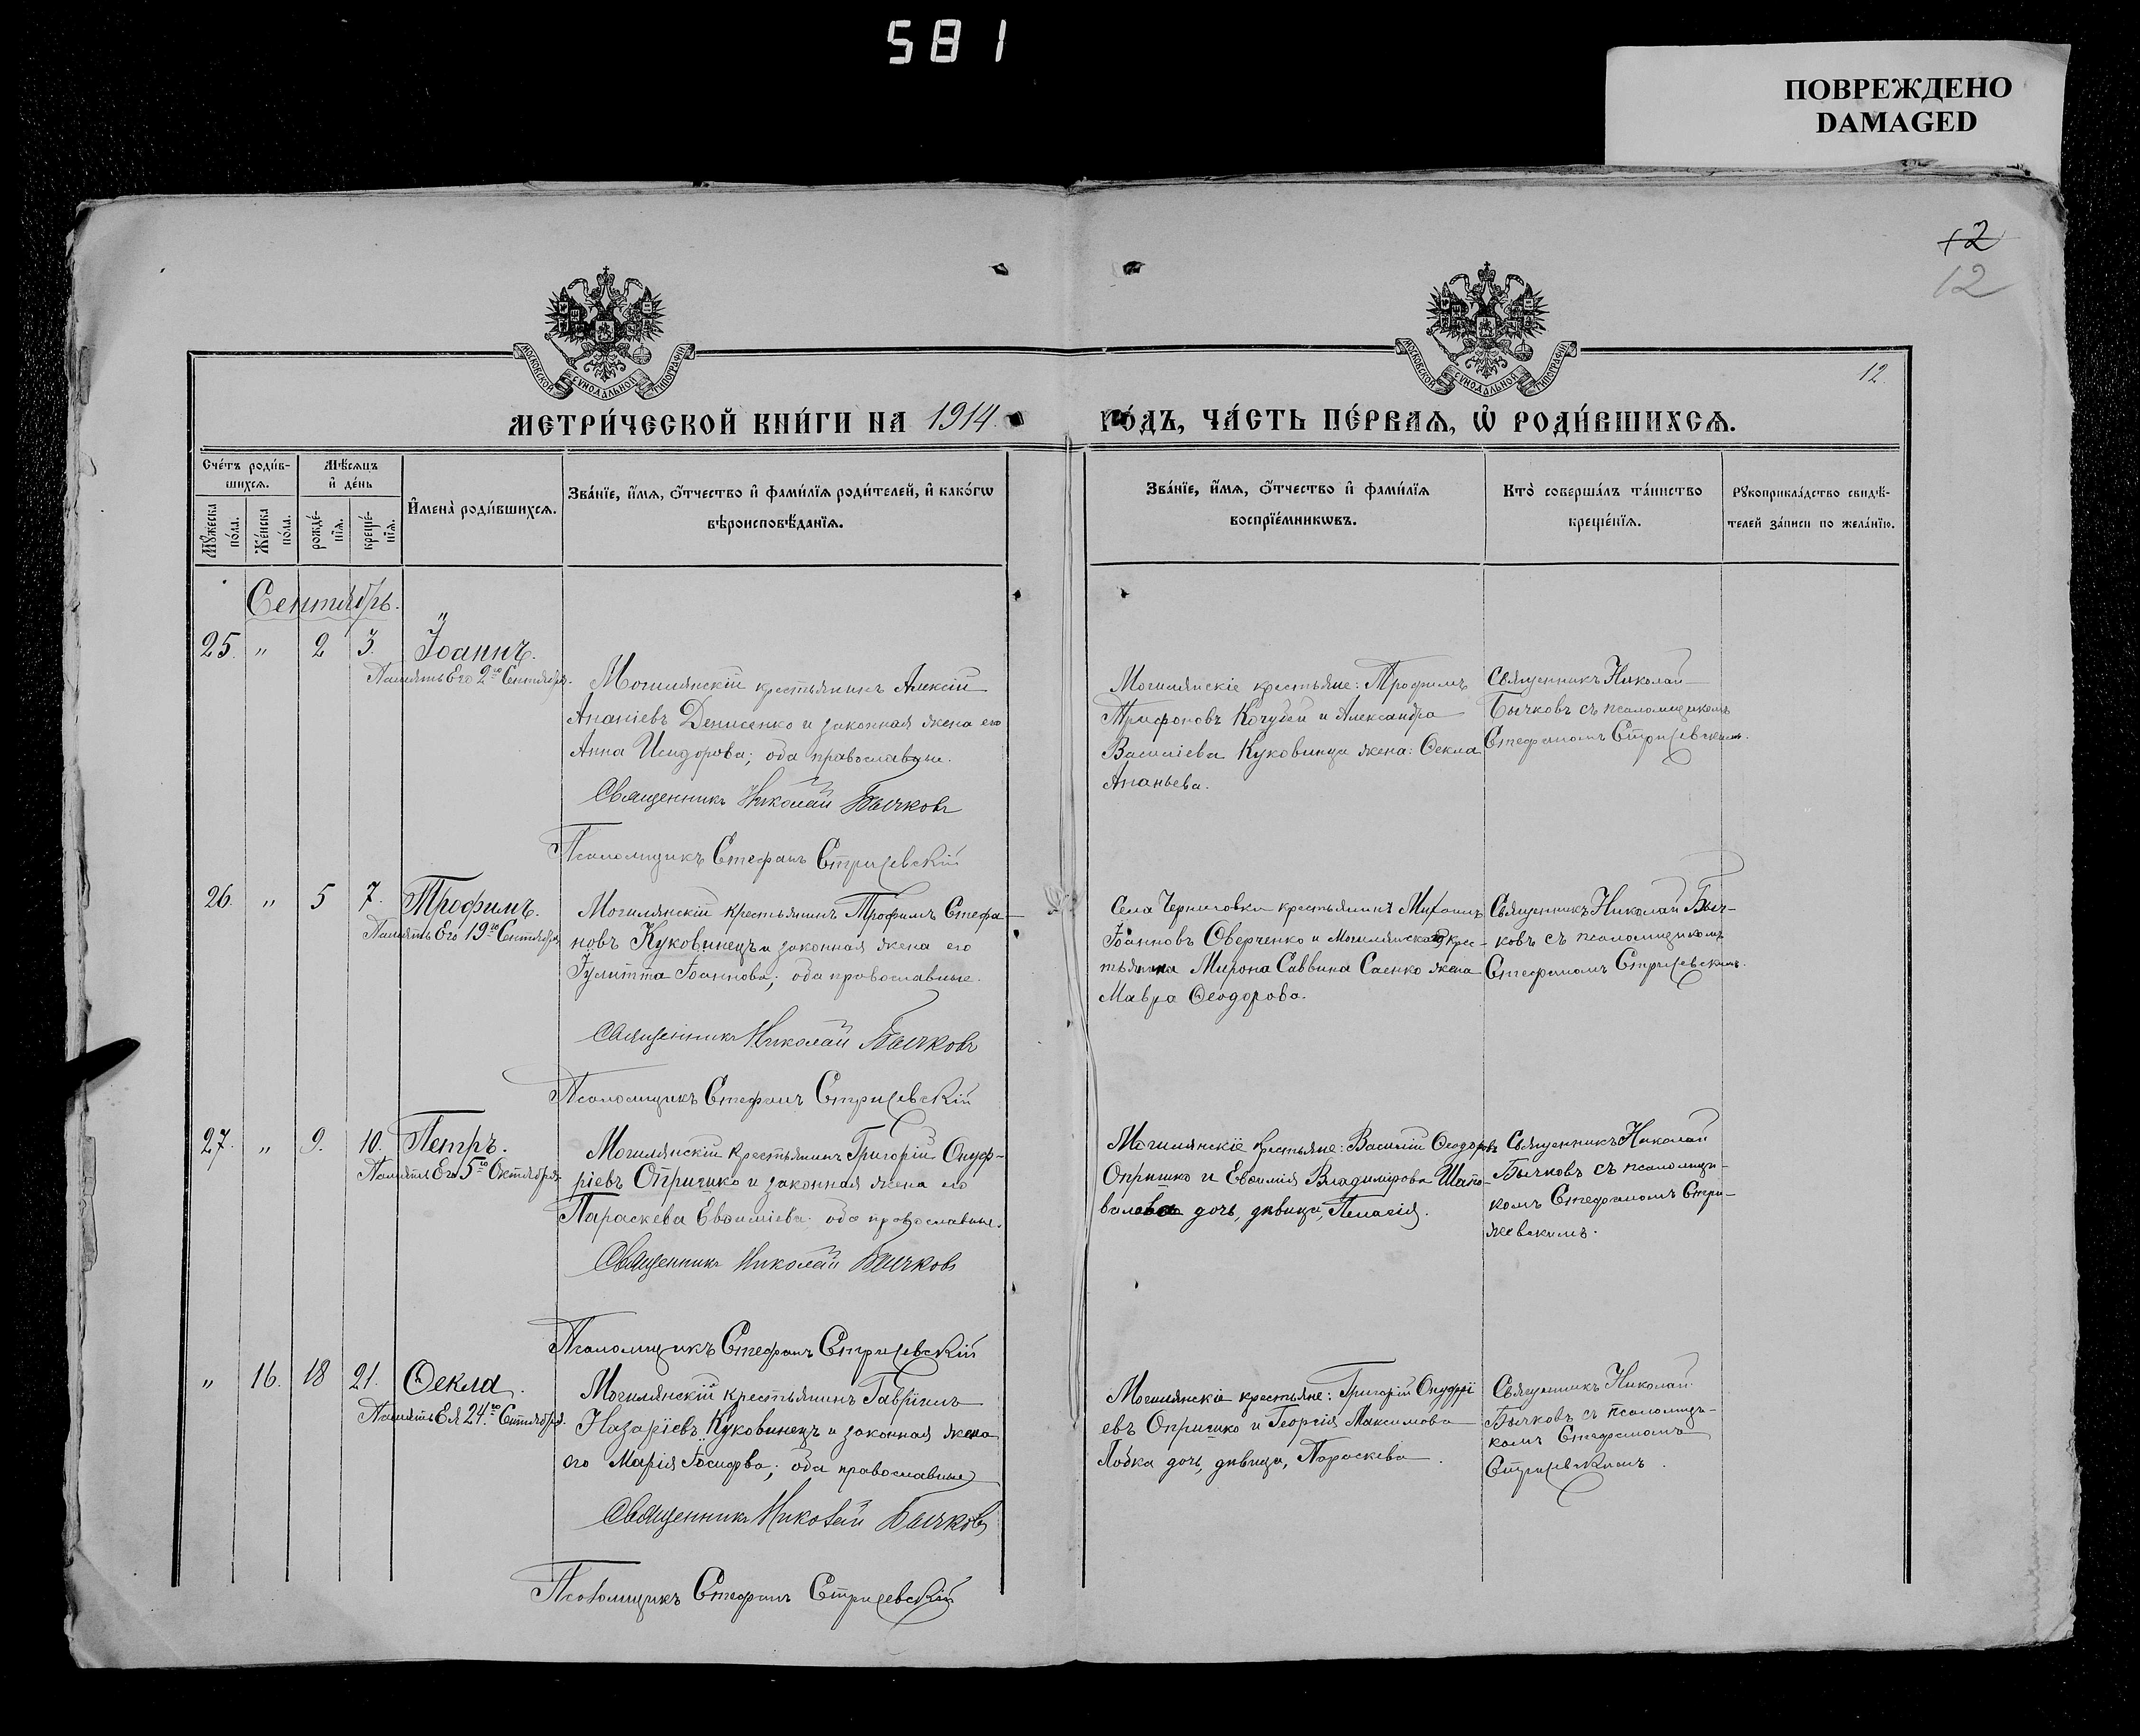 581
ПОВРЕЖДЕНО
DAMAGED
12
12
12.
МОСКОВСКОЙ СУНОДАЛЬНОЙ ТИПОГРАФІИ
МОСКОВСКОЙ СУНОДАЛЬНОЙ ТИПОГРАФІИ
МЕТРИ́ЧЕСКОЙ КНИ́ГИ НА 1914. ГО́ДЪ, ЧА́СТЬ ПЕ́РВАѦ, Ѡ҆ РОДИ́ВШИХСѦ.
Сче́тъ роди́в-
шихсѧ.
Мꙋ́жеска
по́ла.
Же́нска
по́ла.
Мѣ́сѧцъ
и҆ де́нь
рожде́-
нїѧ.
креще́-
нїѧ.
И҆мена̀ роди́вшихсѧ.
Зва́нїе, и҆́мѧ, ѻ҆́тчество и҆ фами́лїѧ роди́телей, и҆ како́гѡ
вѣроисповѣ́данїѧ.
Зва́нїе, и҆́мѧ, ѻ҆́тчество и҆ фами́лїѧ
воспрїе́мникѡвъ.
Кто̀ соверша́лъ та́инство
креще́нїѧ.
Рꙋкоприкла́дство свидѣ́-
телей за́писи по жела́нїю.
Сентябрь.
25. " 2 3. Іоаннъ.
Память Его 2го Сентября.
Могилянскій крестьянинъ Алексій
Ананіевъ Денисенко и законная жена его
Анна Исидорова; оба православные.
Священникъ Николай Бычковъ
Псаломщикъ Стефанъ Стрижевскій
Могилянскіе крестьяне: Трофимъ
Трифоновъ Кочубей и Александра
Василіева Куковинца жена: Ѳекла
Ананьева.
Священникъ Николай
Бычковъ съ псаломщикомъ
Стефаномъ Стрижевскимъ.
26. " 5 7. Трофимъ.
Память Его 19го Сентября
Могилянскій крестьянинъ Трофимъ Стефа-
новъ Куковинецъ и законная жена его
Іулитта Іоаннова; оба православные.
Священникъ Николай Бычковъ
Псаломщикъ Стефанъ Стрижевскій
Села Черниговки крестьянинъ Михаилъ
Іоанновъ Оверченко и Могилянскаго крес-
тьянина Мирона Саввина Саенко жена
Мавра Ѳеодорова.
Священникъ Николай Быч-
ковъ съ псаломщикомъ
Стефаномъ Стрижевскимъ.
27. " 9. 10. Петръ.
Память Его 5го Октября
Могилянскій крестьянинъ Григорій Онуф-
ріевъ Опришко и законная жена его
Параскева Евѳиміева; оба православные.
Священникъ Николай Бычковъ
Псаломщикъ Стефанъ Стрижевскій
Могилянскіе крестьяне: Василій Ѳеодоровъ
Опришко и Евѳимія Владимірова Шапо-
валова дочь, дѣвица, Пелагія.
Священникъ Николай
Бычковъ съ псаломщи-
комъ Стефаномъ Стри-
жевскимъ.
" 16. 18 21. Ѳекла.
Память Ея 24го Сентября.
Могилянскій крестьянинъ Гавріилъ
Назаріевъ Куковинецъ и законная жена
его Марія Іосифова; оба православные
Священникъ Николай Бычковъ
Псаломщикъ Стефанъ Стрижевскій
Могилянскіе крестьяне: Григорій Онуфрі
евъ Опришко и Георгія Максимова
Лобка дочь, дѣвица, Параскева.
Священникъ Николай
Бычковъ съ псаломщи-
комъ Стефаномъ
Стрижевскимъ.